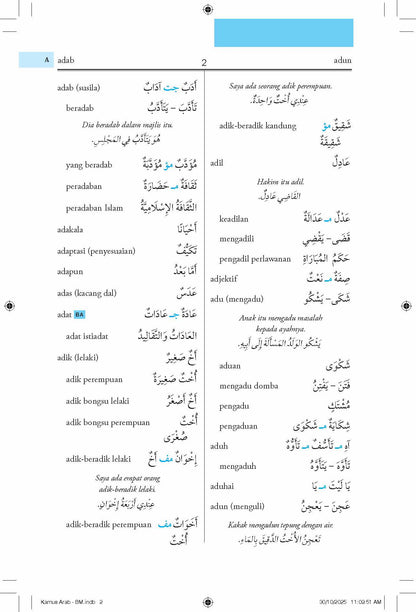 A adab 2 adun
adab (susila) أَدَبٌ جـ آدَابٌ
beradab تَأَدَّبَ – يَتَأَدَّبُ
Dia beradab dalam majlis itu.
هُوَ يَتَأَدَّبُ فِي المَجْلِسِ.
yang beradab مُؤَدَّبٌ مؤ مُؤَدَّبَةٌ
peradaban ثَقَافَةٌ مـ حَضَارَةٌ
peradaban Islam الثَّقَافَةُ الإِسْلَامِيَّةُ
adakala أَحْيَانًا
adaptasi (penyesuaian) تَكَيُّفٌ
adapun أَمَّا بَعْدُ
adas (kacang dal) عَدَسٌ
adat BA عَادَةٌ جـ عَادَاتٌ
adat istiadat العَادَاتُ وَالتَّقَالِيدُ
adik (lelaki) أَخٌ صَغِيرٌ
adik perempuan أُخْتٌ صَغِيرَةٌ
adik bongsu lelaki أَخٌ أَصْغَرُ
adik bongsu perempuan أُخْتٌ
صُغْرَى
adik-beradik lelaki إِخْوَانٌ مف أَخٌ
Saya ada empat orang
adik-beradik lelaki.
عِنْدِي أَرْبَعَةُ إِخْوَانٍ.
adik-beradik perempuan أَخَوَاتٌ مف
أُخْتٌ
Saya ada seorang adik perempuan.
عِنْدِي أُخْتٌ وَاحِدَةٌ.
adik-beradik kandung شَقِيقٌ مؤ
شَقِيقَةٌ
adil عَادِلٌ
Hakim itu adil.
القَاضِي عَادِلٌ.
keadilan عَدْلٌ مـ عَدَالَةٌ
mengadili قَضَى – يَقْضِي
pengadil perlawanan حَكَمُ المُبَارَاةِ
adjektif صِفَةٌ مـ نَعْتٌ
adu (mengadu) شَكَى – يَشْكُو
Anak itu mengadu masalah
kepada ayahnya.
يَشْكُو الوَلَدُ المَسْأَلَةَ إِلَى أَبِيهِ.
aduan شَكْوَى
mengadu domba فَتَنَ – يَفْتِنُ
pengadu مُشْتَكٍ
pengaduan شِكَايَةٌ مـ شَكْوَى
aduh آهِ مـ تَأَسُّفٌ مـ تَأَوُّهٌ
mengaduh تَأَوَّهَ – يَتَأَوَّهُ
aduhai يَا لَيْتَ مـ يَا
adun (menguli) عَجَنَ – يَعْجِنُ
Kakak mengadun tepung dengan air.
تَعْجِنُ الأُخْتُ الدَّقِيقَ بِالمَاءِ.
Kamus Arab - BM.indb 2 30/10/2025 11:09:51 AM